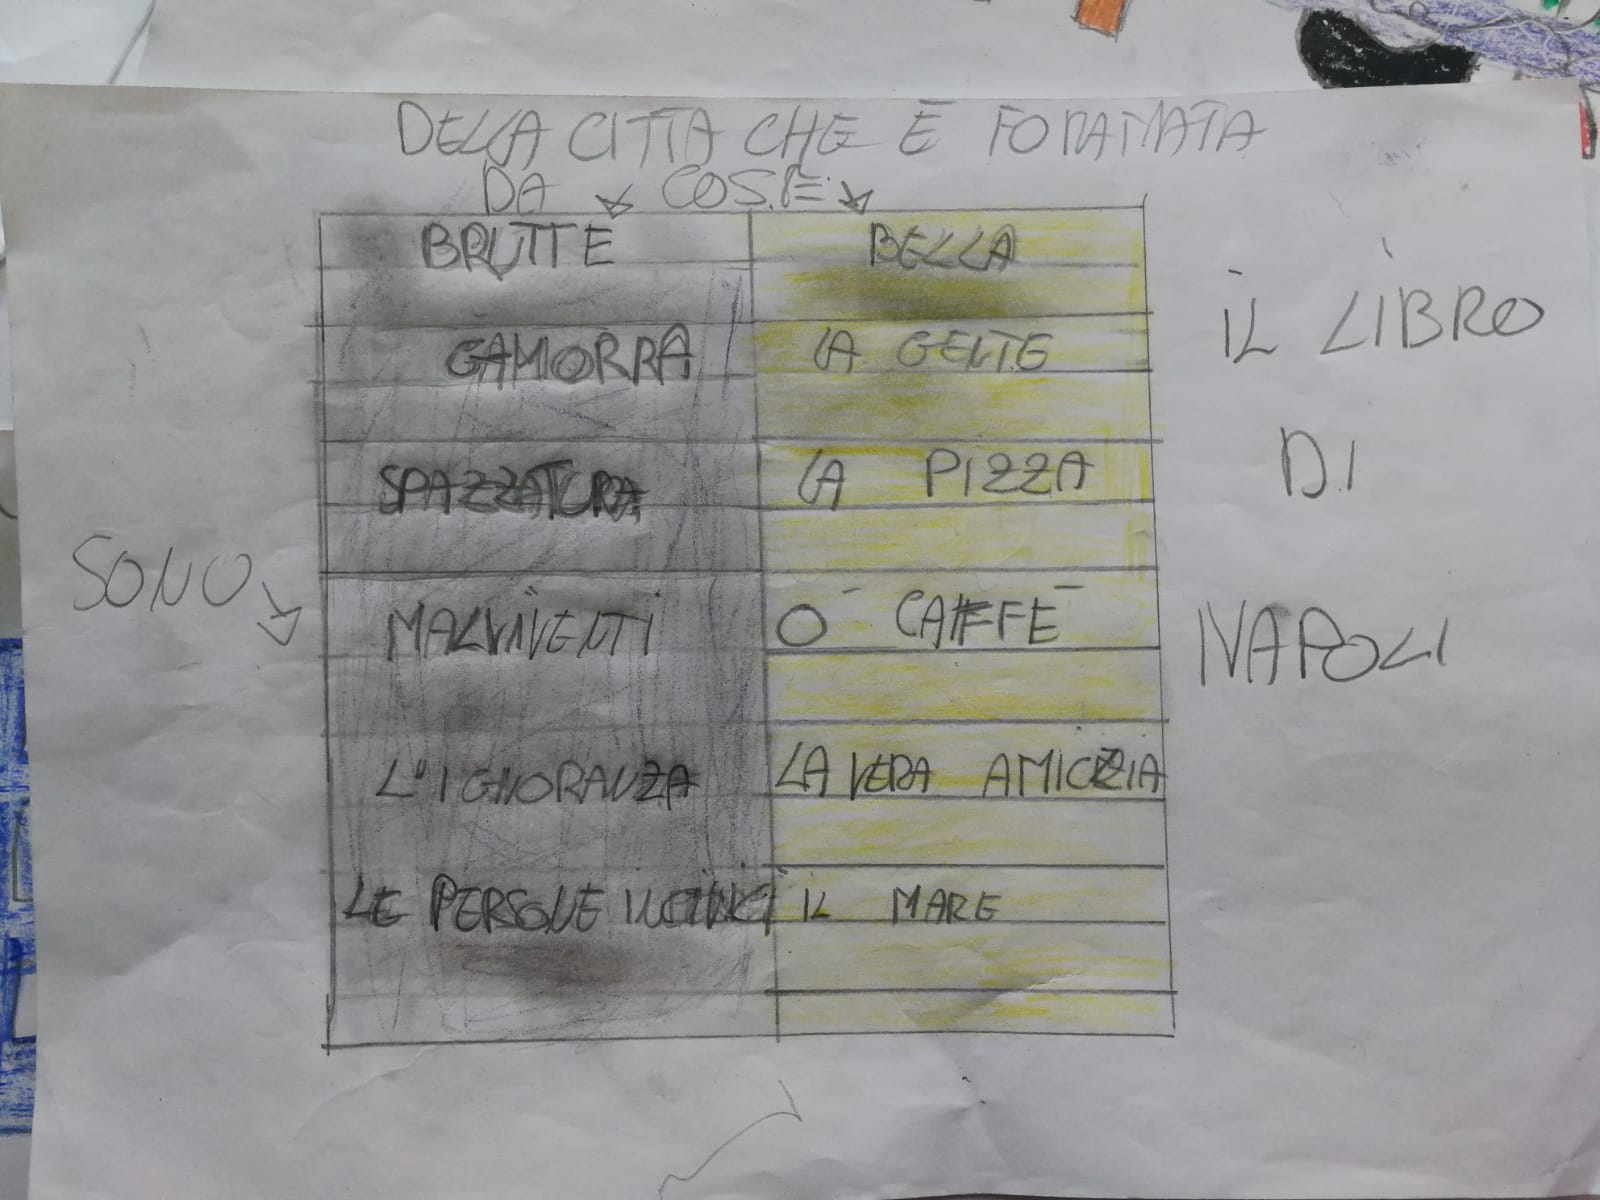 DELLA CITTA CHE È FORMATA
DA COSE
BRUTTE BELLA
GAMORRA LA GENTE
SPAZZATURA LA PIZZA
MALVIVENTI O CAFFE
L'IGNORANZA LA VERA AMICIZIA
LE PERSONE IL MARE
SONO
IL LIBRO
DI
NAPOLI